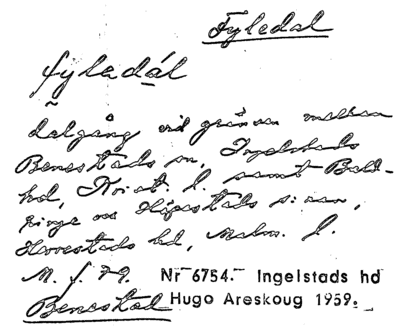 Fyledal
fyledál
dalgång vid gränsen mellan
Benestads sn, Ingelstads
hd, Krist. l. samt Bald-
ringe och Högestads s:nar,
Herrestads hd, Malm. l.
M. f. 79. Nr 6754.- Ingelstads hd
Benestad Hugo Areskoug 1959.